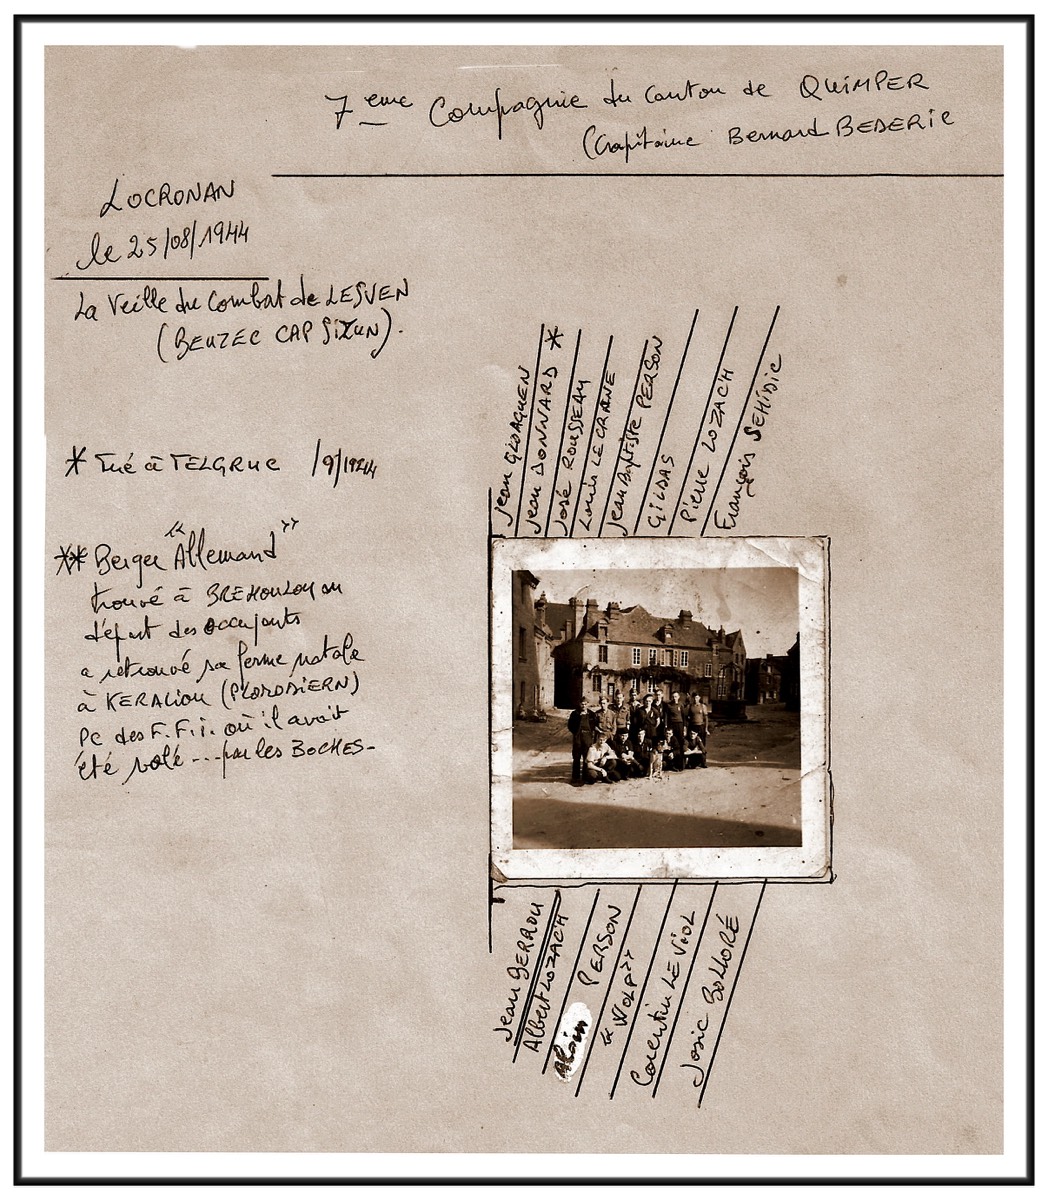 7eme Compagnie du Canton de QUIMPER
(Capitaine Bernard BEDERIC
LOCRONAN
le 25/08/1944
La Veille du Combat de LESVEN
(BEUZEC CAP SIZUN).
* Tué à TELGRUC /9/1944
** Berger "Allemand"
trouvé à BREHOULOU au
départ des occupants
a retrouvé sa ferme natale
à KERALIOU (PLOMODIERN)
PC des F.F.i. où il avait
été volé ... par les BOCHES-
Jean GLOAGUEN
Jean DONNARD *
José ROUSSEAU
Louis LE GRANE
Jean Baptiste PERSON
GILDAS
Pierre LOZAC'H
François SEHÉDIC
Jean BERROU
Albert LOZAC'H
Alain PERSON
"WOLF"
Corentin LE VIOL
Josic BOLLORÉ